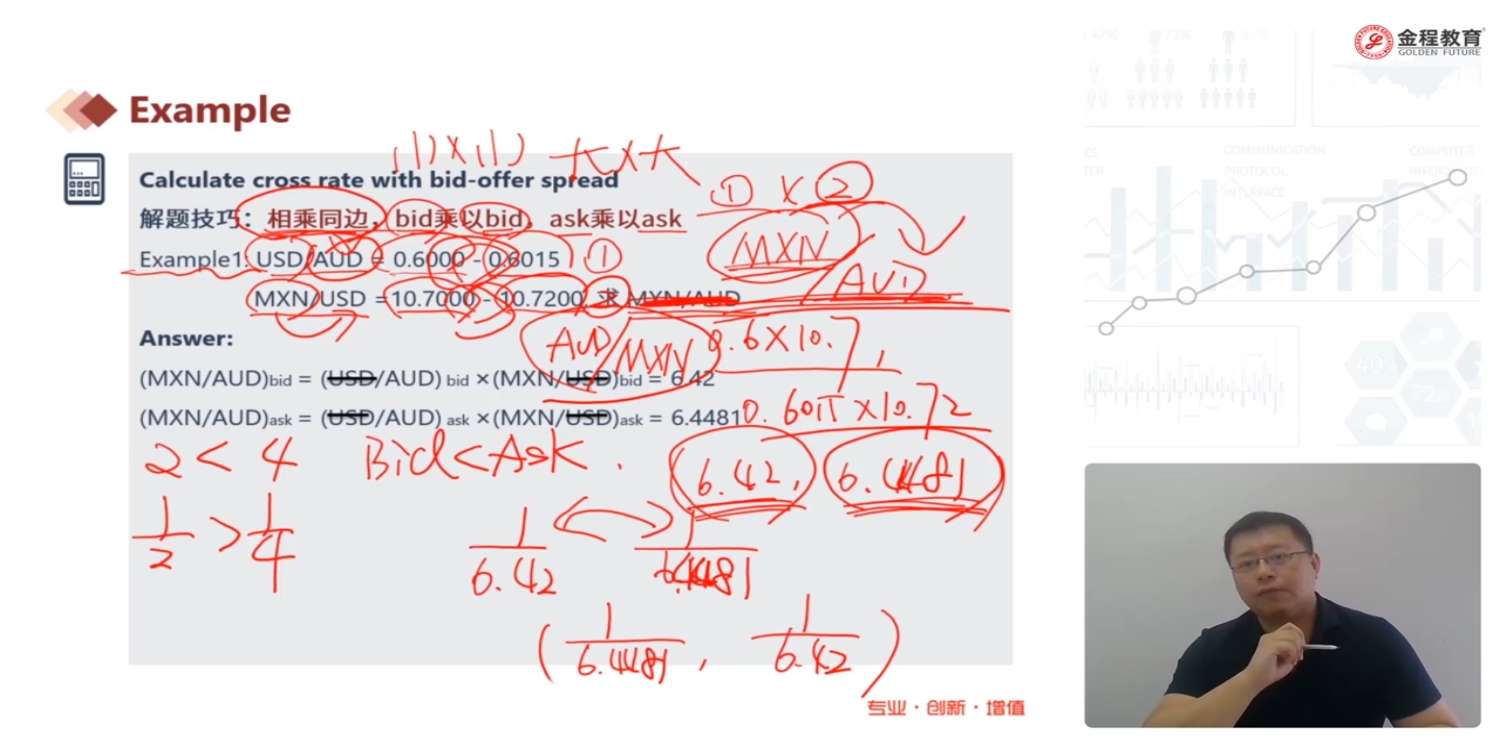 金程教育
GOLDEN FUTURE
Example
小×小 大×大
Calculate cross rate with bid-offer spread
① × ②
解题技巧：相乘同边，bid乘以bid，ask乘以ask
MXN/AUD
Example1: USD/AUD = 0.6000 - 0.6015 ①
MXN/USD =10.7000 - 10.7200, 求 MXN/AUD
Answer:
AUD/MXN
0.6×10.7,
(MXN/AUD)bid = (USD/AUD) bid ×(MXN/USD)bid = 6.42
(MXN/AUD)ask = (USD/AUD) ask ×(MXN/USD)ask = 6.4481
0.6015×10.72
2 < 4 Bid<Ask.
6.42, 6.4481
1/2 > 1/4
1/6.42 1/6.4481
(1/6.4481, 1/6.42)
专业·创新·增值